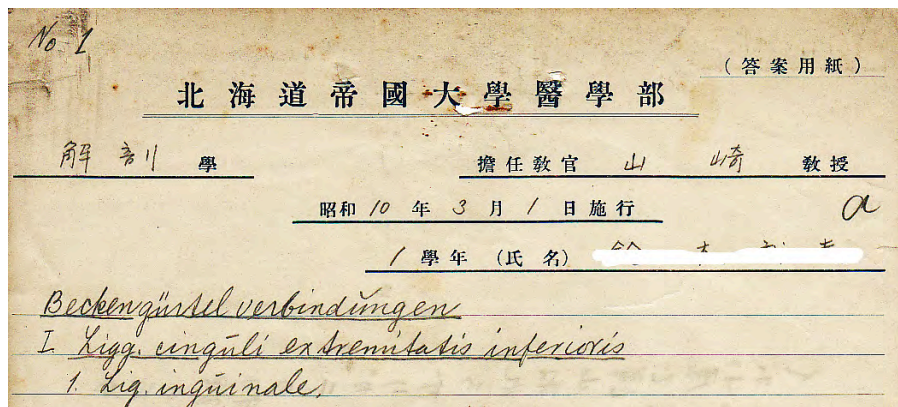 No 1
(答案用紙)
北海道帝國大學醫學部
解剖學 擔任教官 山崎 教授
昭和10年3月1日施行 a
1學年 (氏名)
Beckengürtelverbindungen
I. Ligg. cinguli extremitatis inferioris
1. Lig. inguinale,